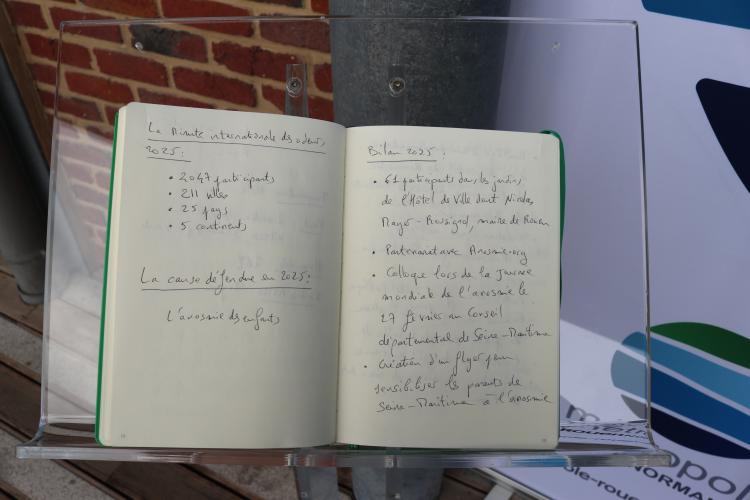 La Minute internationale des odeurs
2025:
• 2047 participants
• 211 villes
• 25 pays
• 5 continents
La cause défendue en 2025:
L'anosmie des enfants
Bilan 2025:
• 61 participants dans les jardins
de l'Hôtel de Ville dont Nicolas
Mayer-Rossignol, maire de Rouen
• Partenariat avec Anosmie.org
• Colloque lors de la Journée
mondiale de l'anosmie le
27 février au Conseil
départemental de Seine-Maritime
• Création d'un flyer pour
sensibiliser les parents de
Seine-Maritime à l'anosmie
NORMA